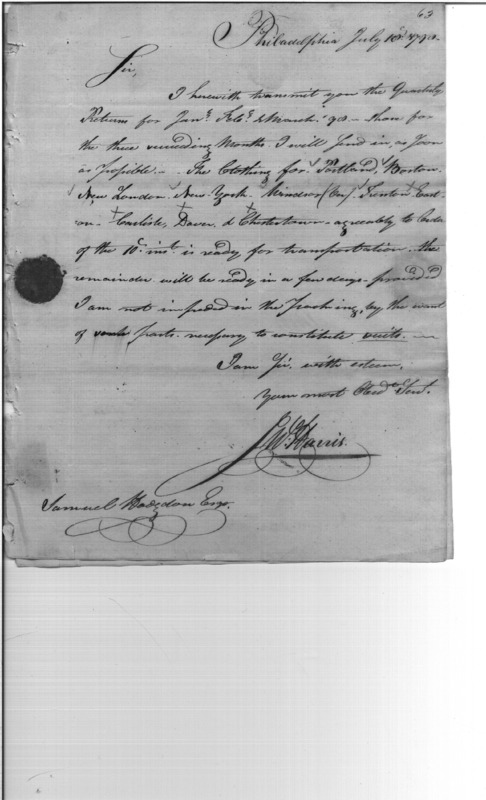 63
Philadelphia July 18th 1798.
Sir,
I herewith transmit you the Quarterly
Returns for Jany. Feby. & March '98 - those for
the three succeeding Months I will send in, as soon
as possible - The Clothing for Portland, Boston
New London New York Windsor (Con) Trenton East-
on Carlisle, Dover & Chestertown - agreeably to Order
of the 10th inst. is ready for transportation. the
remainder will be ready in a few days - provided
I am not impeded in the packing, by the want
of parts necessary to constitute suits.
I am Sir, with esteem,
Your most Obedt. Servt.
Harris.
Samuel Hodgdon Esqr.